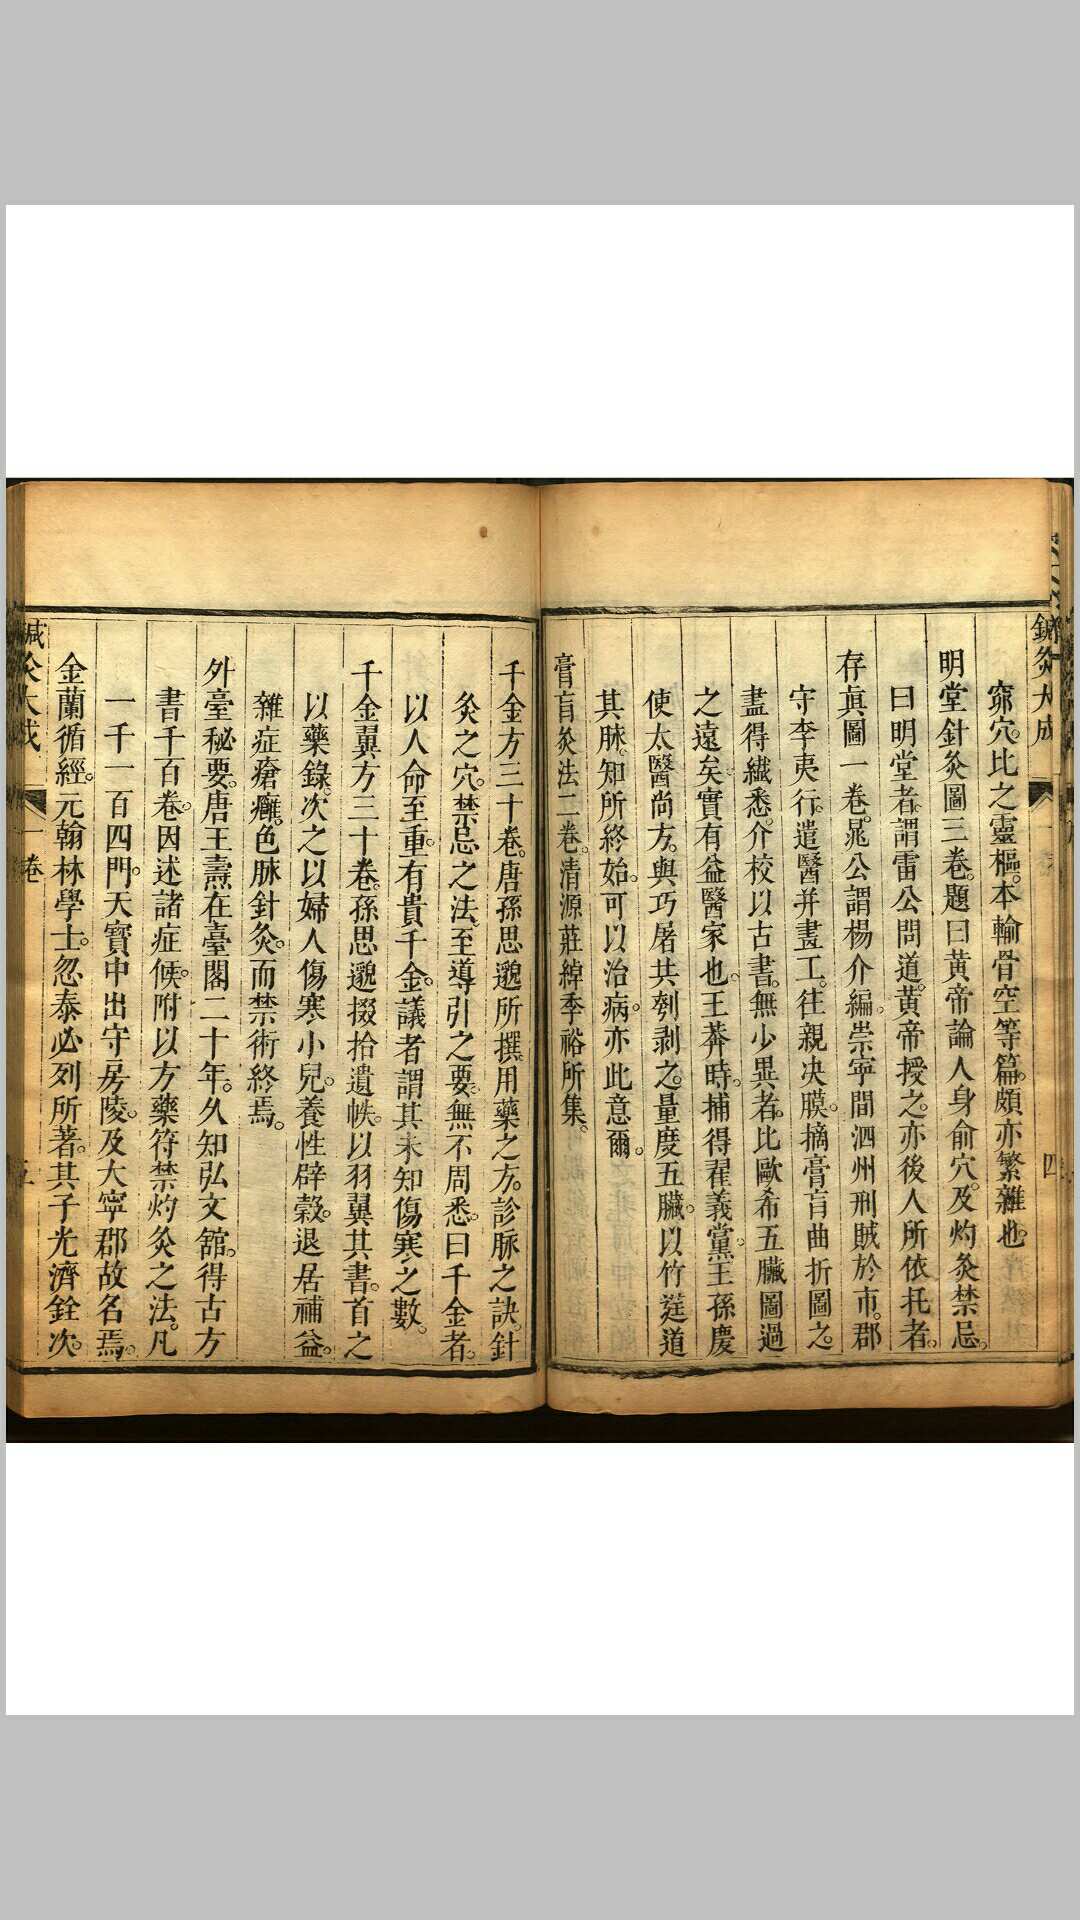 鍼灸大成
四
窌穴。比之靈樞。本輸骨空等篇。頗亦繁雜也。
明堂針灸圖三卷。題曰黃帝論人身俞穴。及灼灸禁忌。
曰明堂者。謂雷公問道。黃帝授之。亦後人所依托者。
存眞圖一卷。晁公謂楊介編。崇寧間泗州刑賊於市。郡
守李夷行。遣醫并畫工。往親决膜。摘膏肓曲折圖之。
盡得纎悉。介校以古書。無少異者。比歐希五臟圖過
之遠矣。實有益醫家也。王莽時。捕得翟義黨。王孫慶
使太醫尚方。與巧屠共刳剥之。量度五臟。以竹筳道
其脉。知所終始。可以治病。亦此意爾。
膏肓灸法二卷。清源莊綽季裕所集。
千金方三十卷。唐孫思邈所撰。用藥之方。診脈之訣。針
灸之穴。禁忌之法。至導引之要。無不周悉。曰千金者。
以人命至重。有貴千金。議者謂其未知傷寒之數。
千金翼方三十卷。孫思邈掇拾遺帙。以羽翼其書。首之
以藥錄。次之以婦人傷寒小兒。養性辟穀。退居補益。
雜症瘡癰。色脉針灸。而禁術終焉。
外臺秘要。唐王燾在臺閣二十年。久知弘文舘。得古方
書千百卷。因述諸症候。附以方藥符禁灼灸之法。凡
一千一百四門。天寳中出守房陵。及大寧郡故名焉。
金蘭循經。元翰林學士。忽泰必列所著。其子光濟銓次。
鍼灸大成
一卷
五